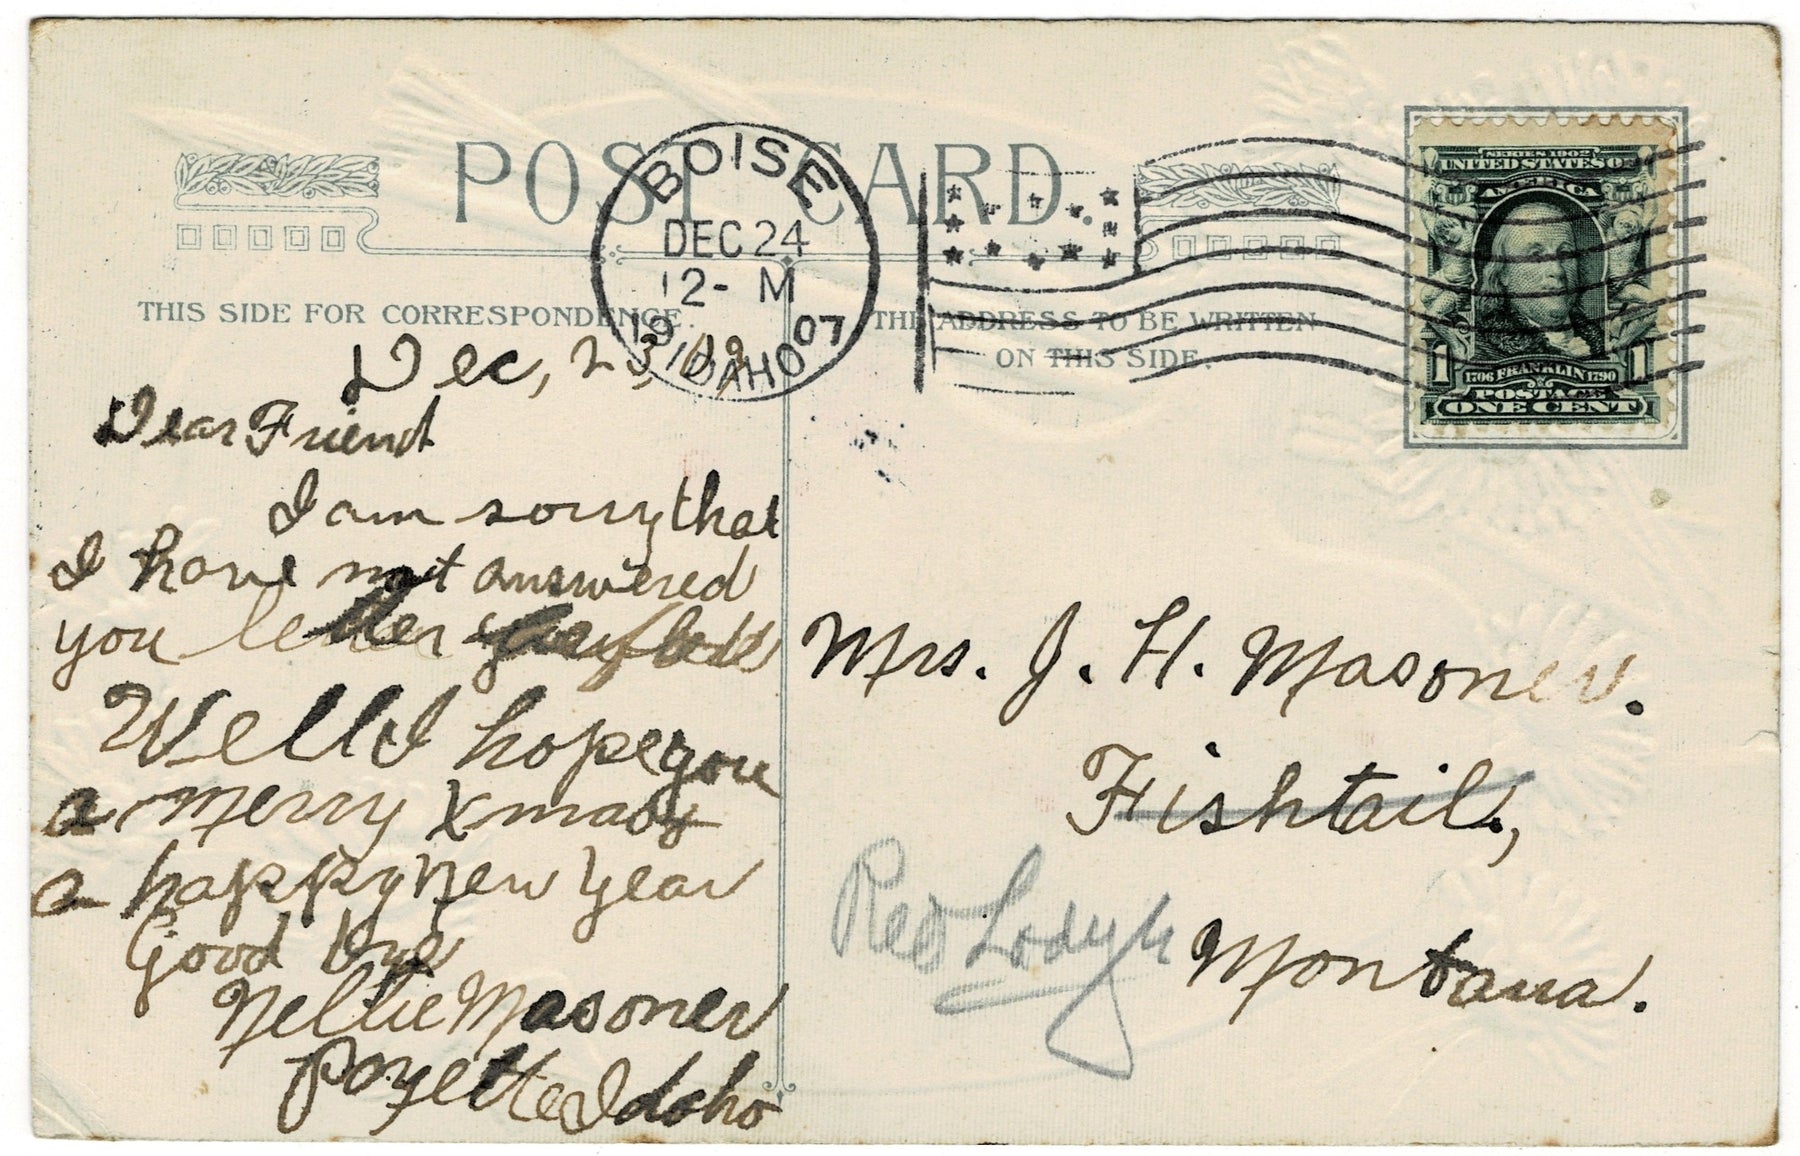 POST CARD.
THIS SIDE FOR CORRESPONDENCE.
THE ADDRESS TO BE WRITTEN
ON THIS SIDE.
BOISE
DEC 24
12- M
1907
IDAHO
SERIES 1902
UNITED STATES OF
AMERICA
1 1
1706 FRANKLIN 1790
POSTAGE
ONE CENT
Dec, 23,
Dear Friend
I am sorry that
I have not answered
you letter
Well I hope you
a merry Xmas
a happy New Year
Good bye
Nellie Masoner
Payette Idaho
Mrs. J. H. Masoner.
Fishtail,
Red Lodge
Montana.